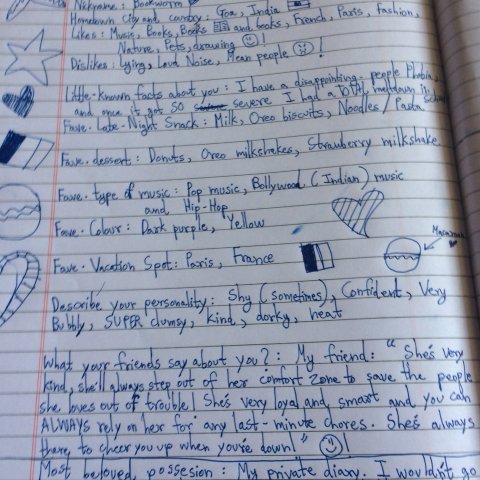 Nickname : Bookworm
Hometown city and country : Goa, India
Likes : Music, Books, Books and books, French, Paris, Fashion,
Nature, Pets, drawing !
Dislikes : Lying, Loud Noise, Mean people !
Little-known facts about you : I have a disappointing-people Phobia,
and once it got SO severe I had a TOTAL meltdown in school
Fave. Late-Night Snack : Milk, Oreo biscuits, Noodles / Pasta
Fave. dessert : Donuts, Oreo milkshakes, Strawberry milkshake
Fave. type of music : Pop music, Bollywood (Indian) music
and Hip-Hop
Fave. Colour : Dark purple, Yellow
Macaroon
Fave. Vacation Spot : Paris, France
Describe your personality : Shy (sometimes), Confident, Very
Bubbly, SUPER clumsy, kind, dorky, neat
What your friends say about you? : My friend: "She's very
kind, she'll always step out of her comfort zone to save the people
she loves out of trouble! She's very loyal and smart and you can
ALWAYS rely on her for any last-minute chores. She's always
there, to cheer you up when you're down!" !
Most beloved possesion : My private diary. I wouldn't go